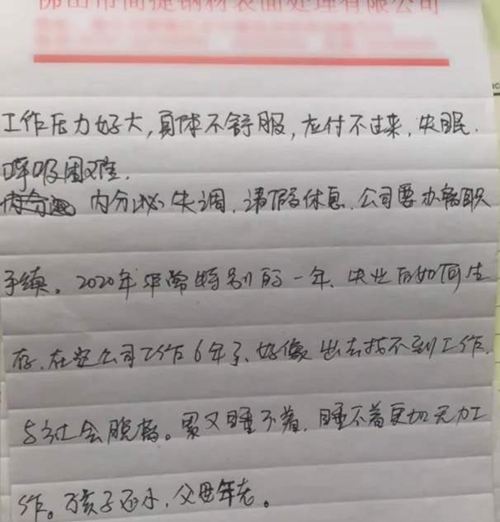 佛山市简捷钢材表面处理有限公司
工作压力好大，身体不舒服，应付不过来，失眠.
呼吸困难.
内分泌失调，请假休息，公司要办离职
手续。2020年非常特别的一年，失业后如何生
存，在 公司工作6年了，好像出去找不到工作，
与社会脱离。累又睡不着，睡不着更加无力工
作。 孩子还小，父母年老。